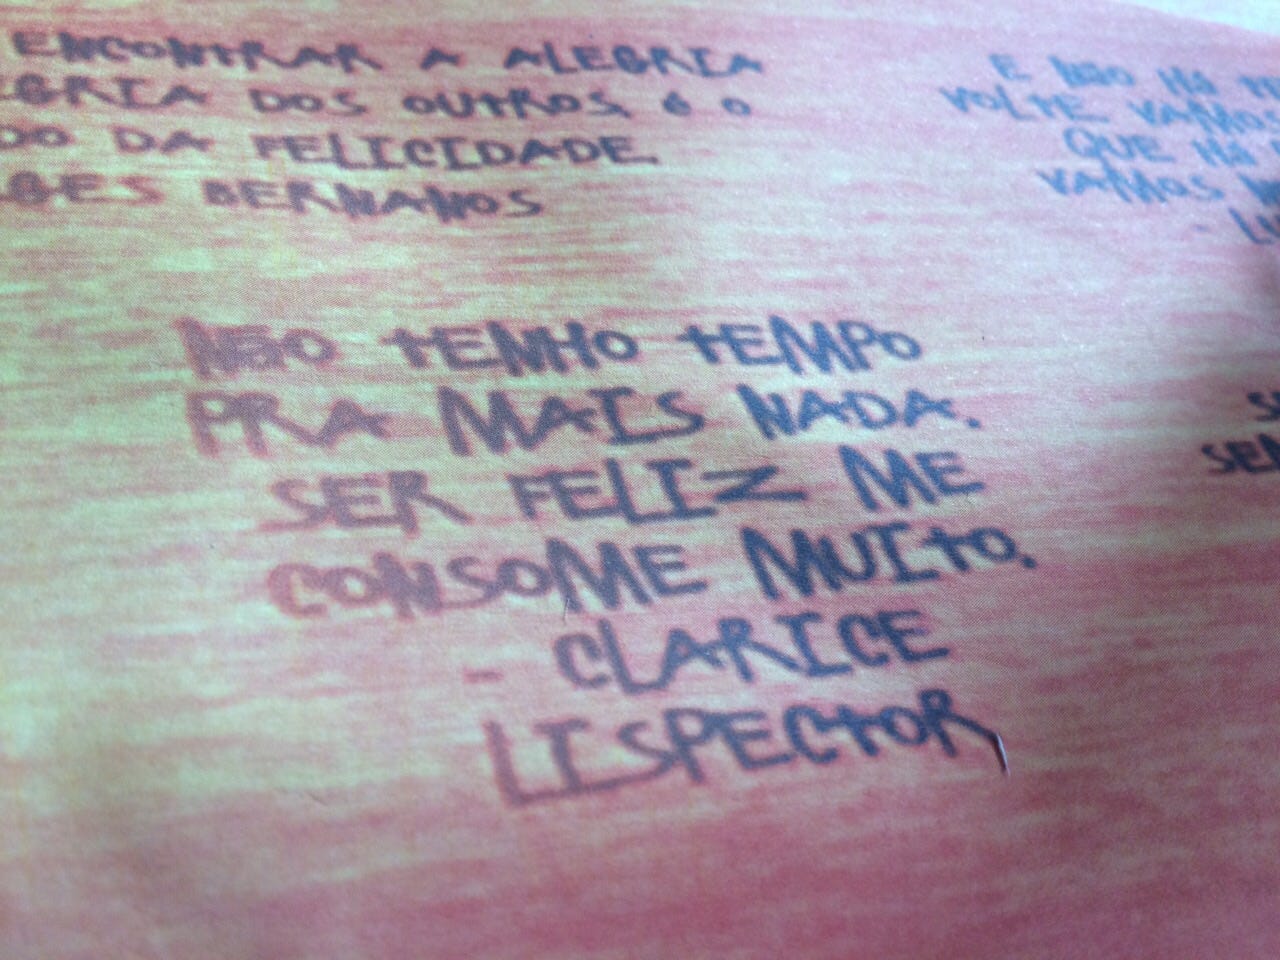 ENCONTRAR A ALEGRIA
DOS OUTROS, é O
DA FELICIDADE.
BERNANOS
E NÃO Há
VOLTE VAMOS
QUE Há
VAMOS
NÃO tENHO tEMPO
PRA MAIS NADA.
SER FELIZ ME
CONSOME MUItO.
- CLARICE
LISPECtOR